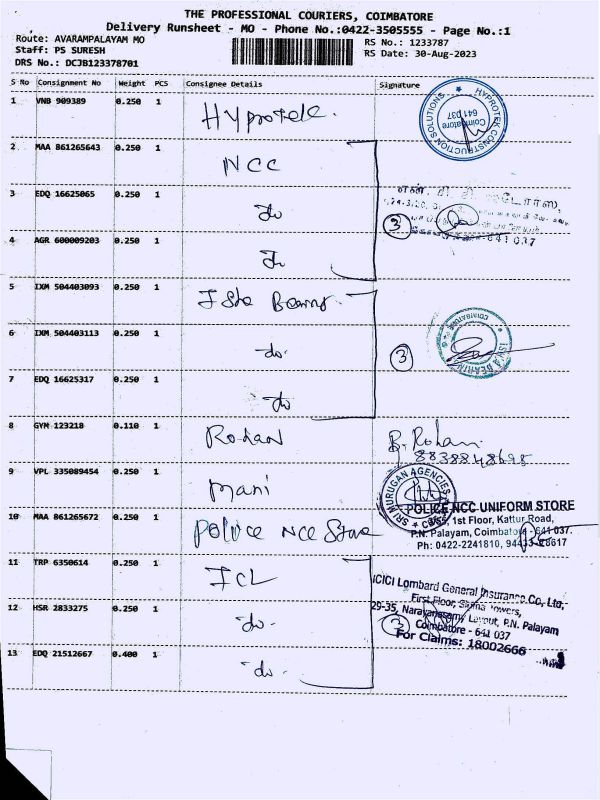 THE PROFESSIONAL COURIERS, COIMBATORE
Delivery Runsheet - MO - Phone No.:0422-3505555 - Page No.:1
Route: AVARAMPALAYAM MO
RS No.: 1233787
Staff: PS SURESH
RS Date: 30-Aug-2023
DRS No.: DCJB123378701
S No Consignment No Weight PCS Consignee Details Signature
1 VNB 909389 0.250 1 Hyprotek.
HYPROTEK CONSTRUCTION SOLUTIONS
Coimbatore
641 037
2 MAA 861265643 0.250 1 NCC
3 EDQ 16625065 0.250 1 do
3
641 037
4 AGR 600009203 0.250 1 do
5 IXM 504403093 0.250 1
6 IXM 504403113 0.250 1 do.
3
COIMBATORE
7 EDQ 16625317 0.250 1 do
8 GYM 123218 0.110 1 Rohan
B. Rohan
8838848698
9 VPL 335089454 0.250 1 Mani
SRI MURUGAN AGENCIES
10 MAA 861265672 0.250 1 Police NCC Store
POLICE NCC UNIFORM STORE
1st Floor, Kattur Road,
P.N. Palayam, Coimbatore - 641 037.
Ph: 0422-2241810,
11 TRP 6350614 0.250 1 ICL
ICICI Lombard General Insurance Co, Ltd,
First Floor, Towers,
12 HSR 2833275 0.250 1 do.
29-35, Narayanasamy Layout, P.N. Palayam
3 Coimbatore - 641 037
For Claims: 18002666
13 EDQ 21512667 0.400 1 do.